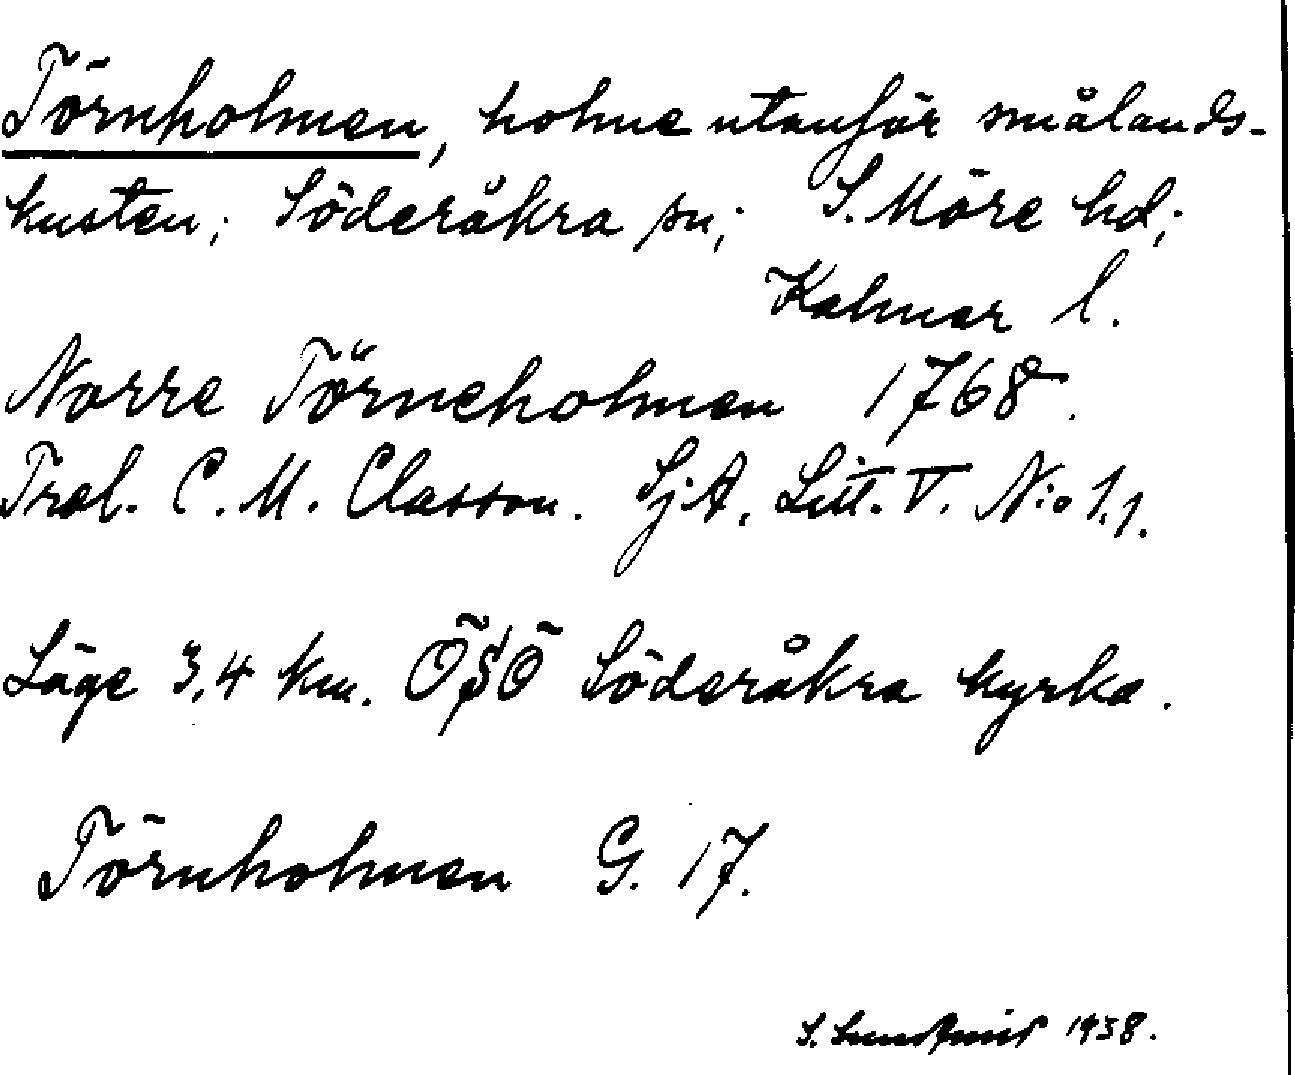 Törnholmen, holme utanför smålands-
kusten; Söderåkra sn; S. Möre hd;
Kalmar l.
Norre Törneholmen 1768.
Trol. C. M. Classon. SjA. Litt. V. N:o 1.1.
Läge 3,4 km. ÖSÖ Söderåkra kyrka.
Törnholmen G. 17.
S. Lundqvist 1938.